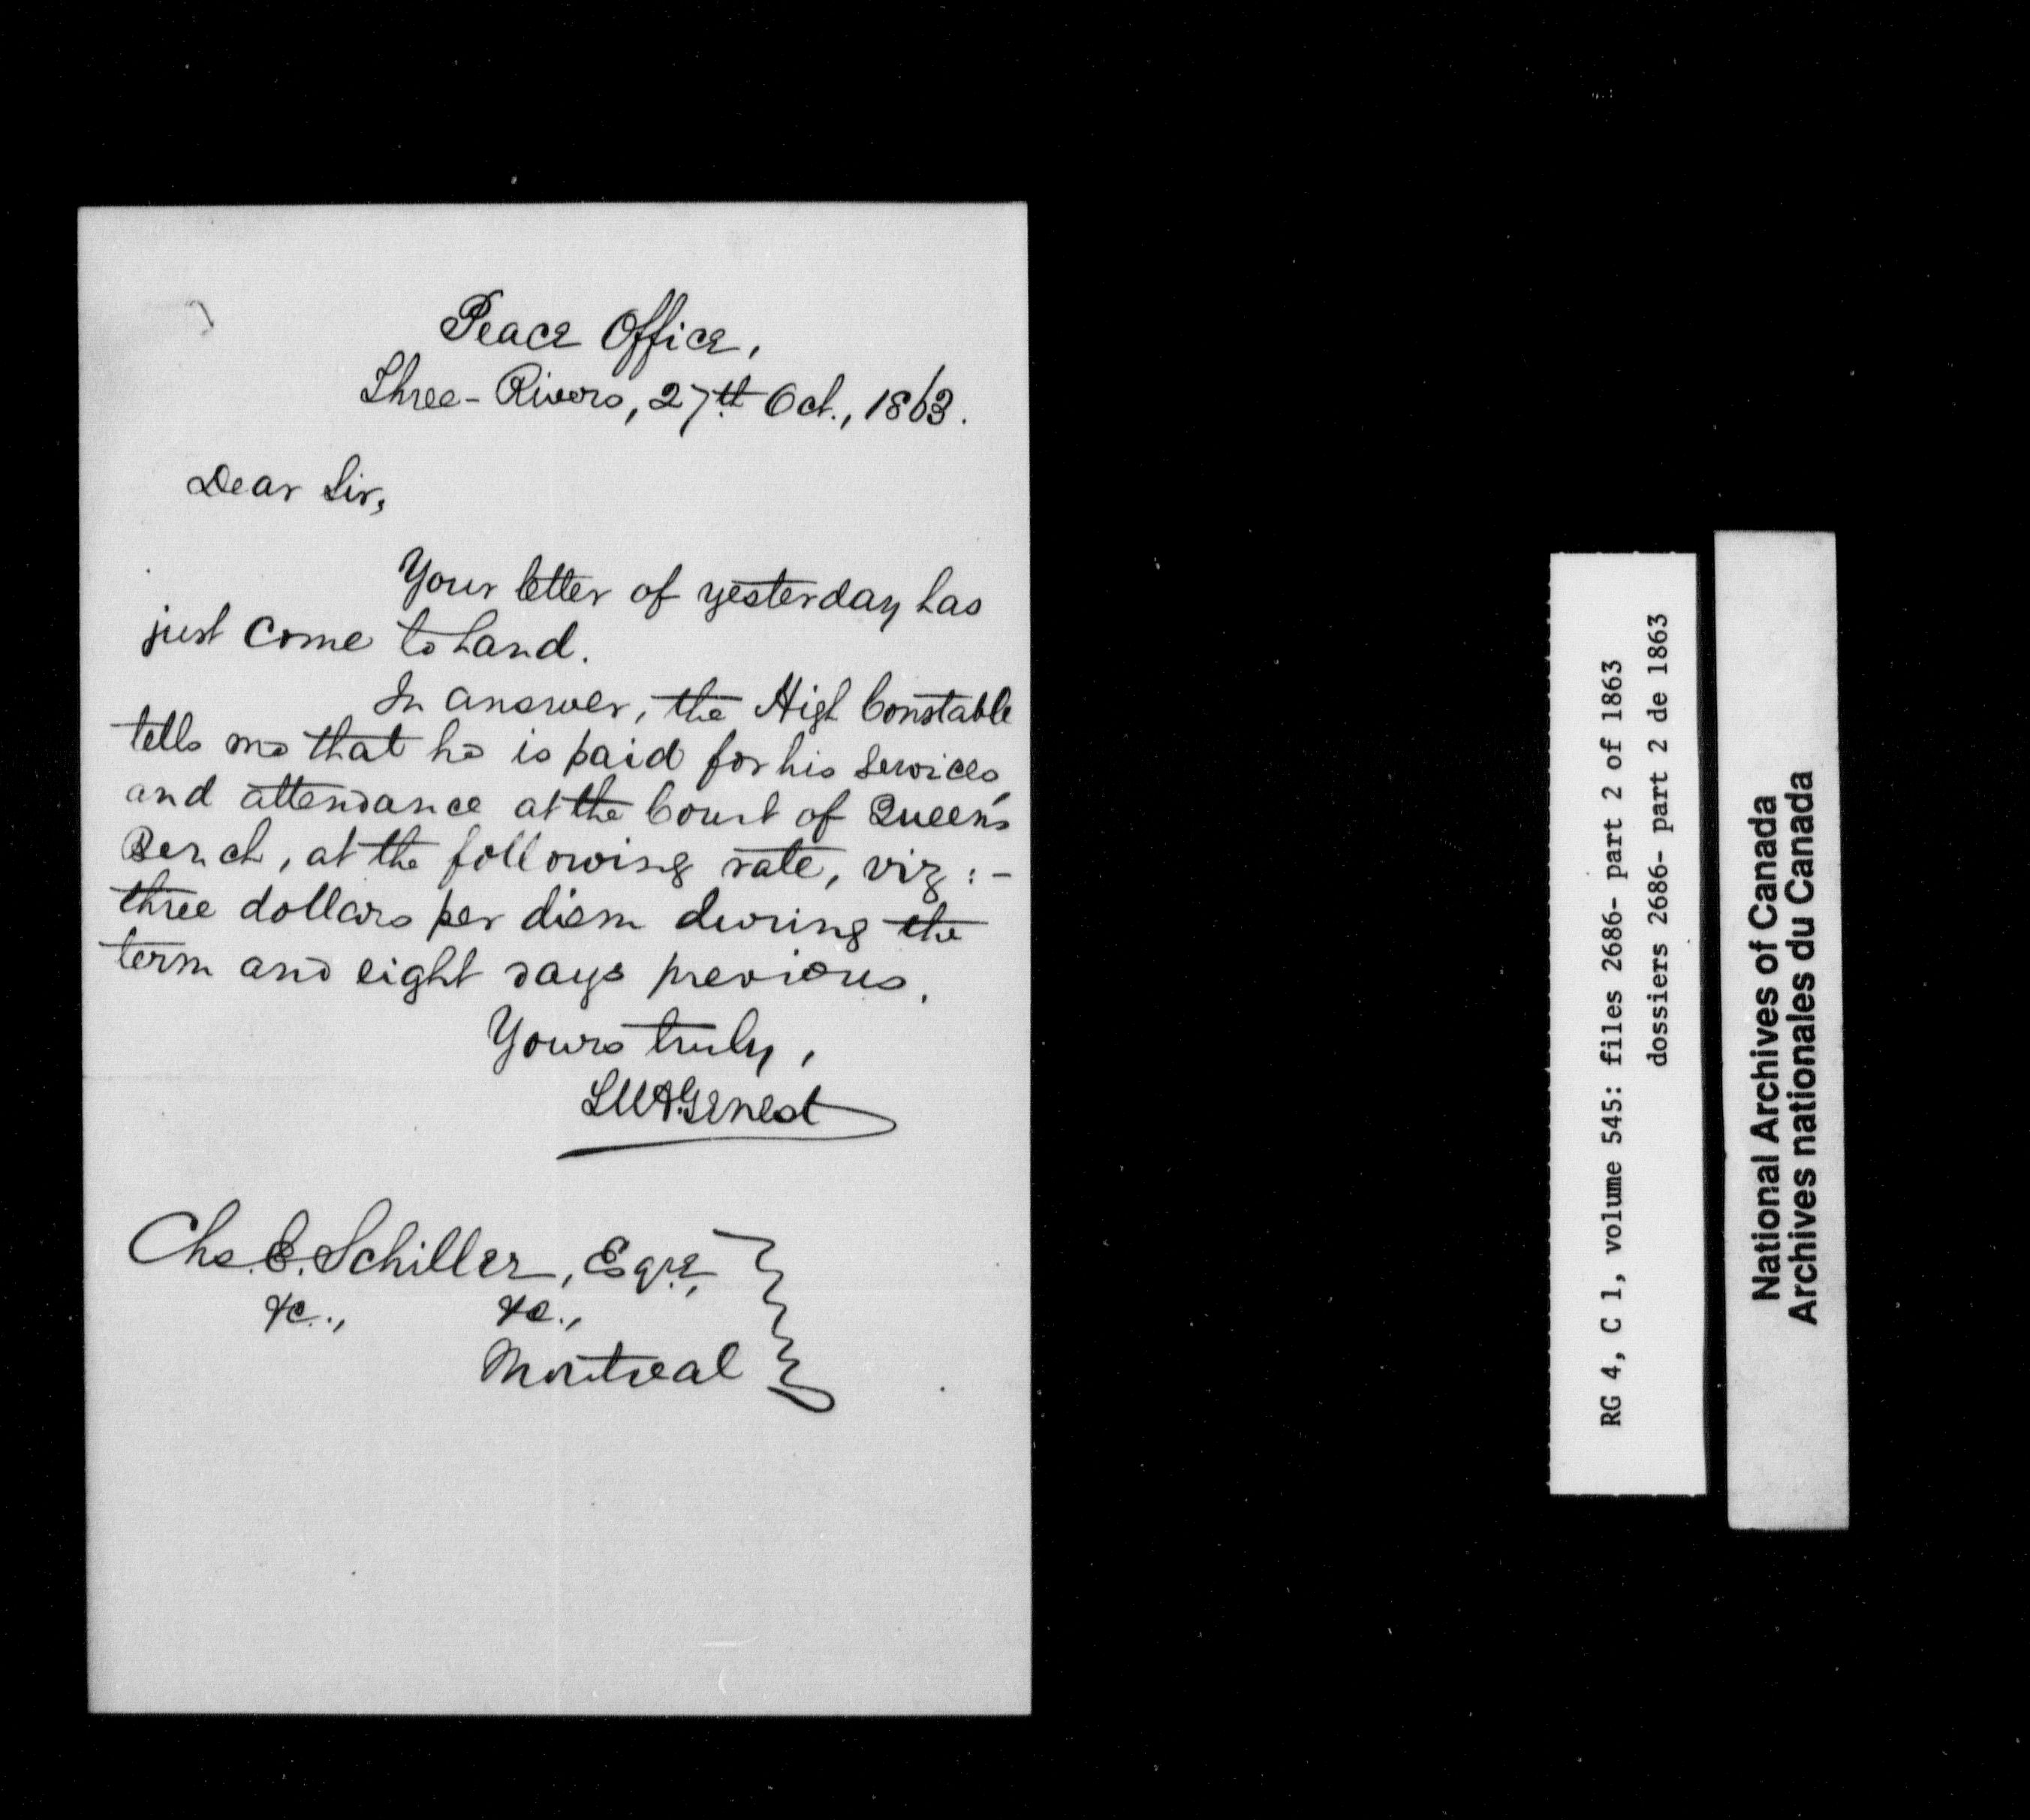 Peace Office,
Three-Rivers, 27th Oct., 1863.
Dear Sir,
Your letter of yesterday has
just come to hand.
In answer, the High Constable
tells me that he is paid for his services,
and attendance at the Court of Queen's
Bench, at the following rate, viz:-
three dollars per diem during the
term and eight days previous.
Yours truly,
LUAGenest
Chs. E. Schiller, Esqre,
&c., &c.,
Montreal
RG 4, C 1, volume 545: files 2686- part 2 of 1863
dossiers 2686- part 2 de 1863
National Archives of Canada
Archives nationales du Canada